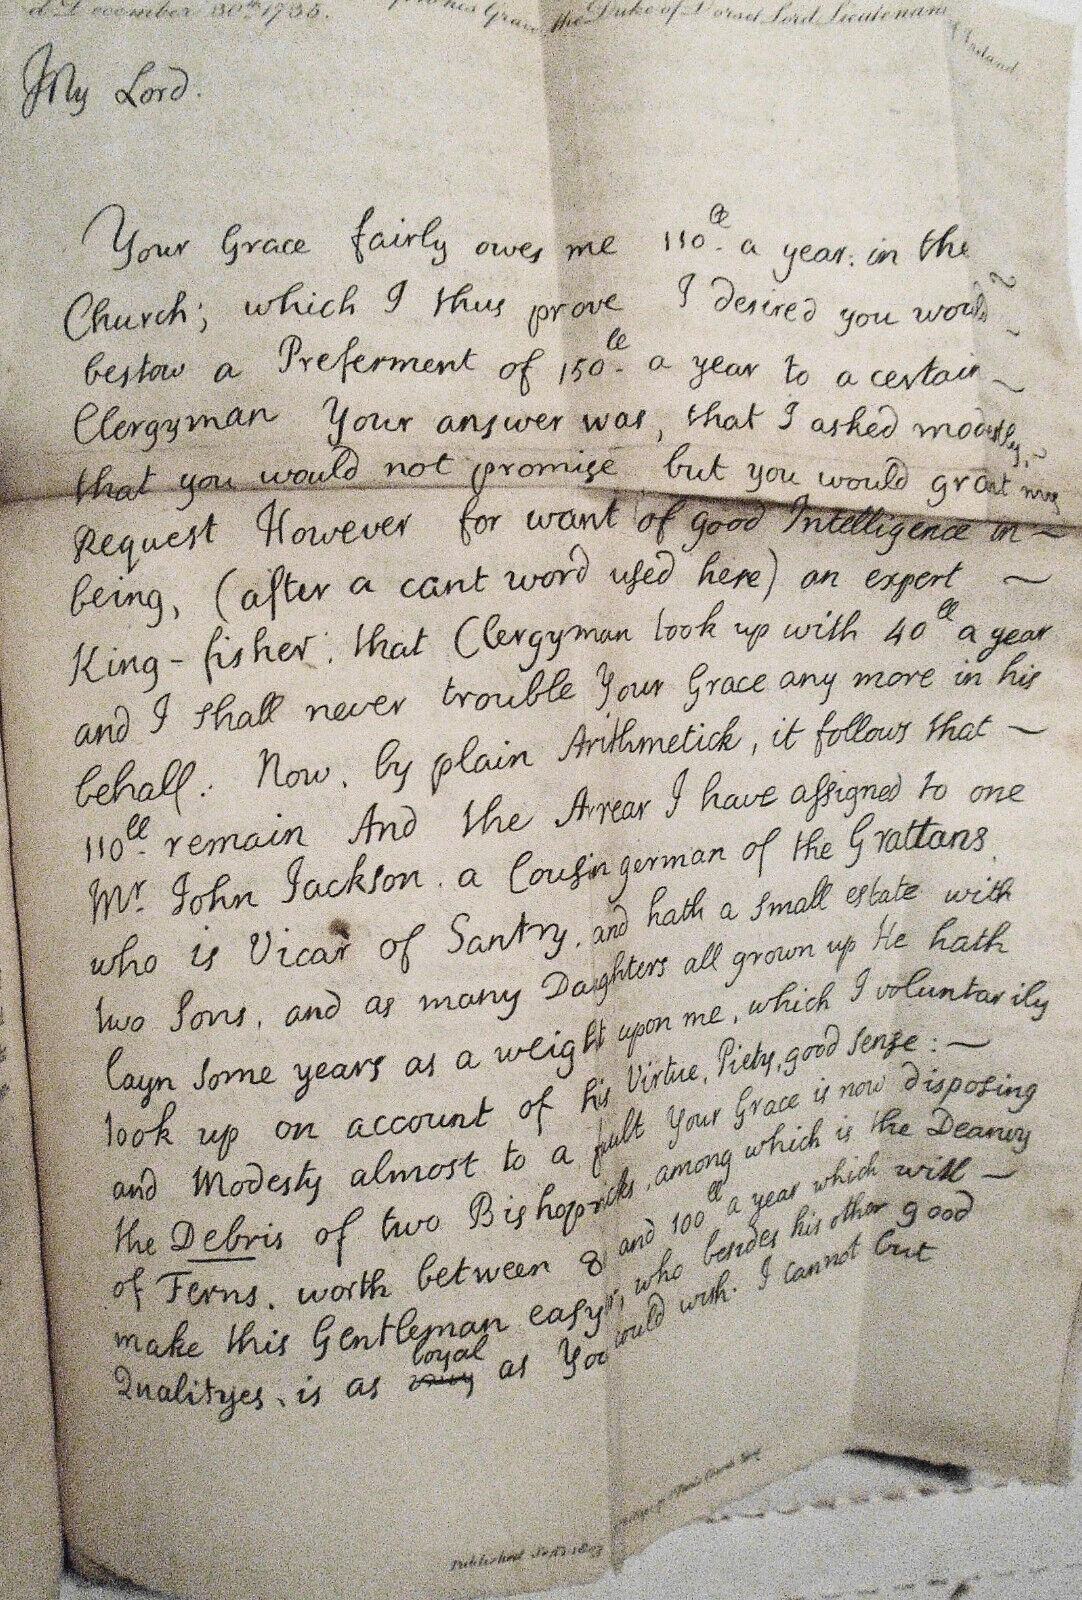 d December 30th 1735.
his Grace the Duke of Dorset Lord Lieutenant
Ireland
My Lord.
Your Grace fairly owes me 110ll. a year. in the
Church; which I thus prove I desired you would ~
bestow a Preferment of 150ll. a year to a certain ~
Clergyman Your answer was, that I asked modestly, ~
that you would not promise but you would grant my
Request However for want of good Intelligence in ~
being, (after a cant word used here) an expert ~
King-fisher. that Clergyman took up with 40ll a year
and I shall never trouble Your Grace any more in his
behalf. Now, by plain Arithmetick, it follows that ~
110ll. remain And the Arrear I have assigned to one
Mr. John Jackson. a Cousin german of the Grattans
who is Vicar of Santry, and hath a small estate with
two Sons, and as many Daughters all grown up He hath
layn some years as a weight upon me, which I voluntarily
took up on account of his Virtue, Piety, good sense: ~
and Modesty almost to a fault Your Grace is now disposing
the Debris of two Bishopricks, among which is the Deanry
of Ferns. worth between 8 and 100ll a year which will ~
make this Gentleman easyr, who besides his other good
Qualityes, is as loyal as You could wish. I cannot but
Published